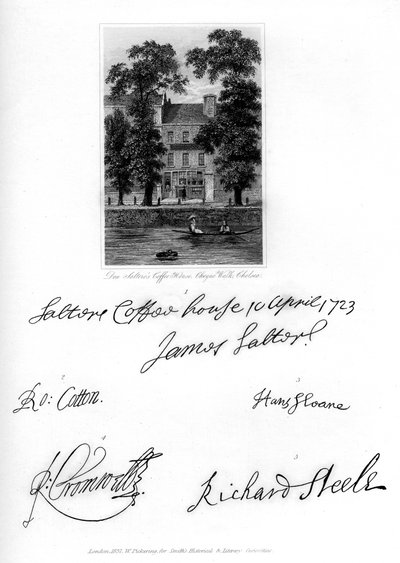 Don Saltero's Coffee House, Cheyne Walk, Chelsea.
1
Saltero Coffee house 10 April 1723
James Salter
2
Ro: Cotton.
3
Hans Sloane
4
R: Cromwell
5
Richard Steele
London, 1837, W. Pickering, for Smith's Historical & Literary Curiosities